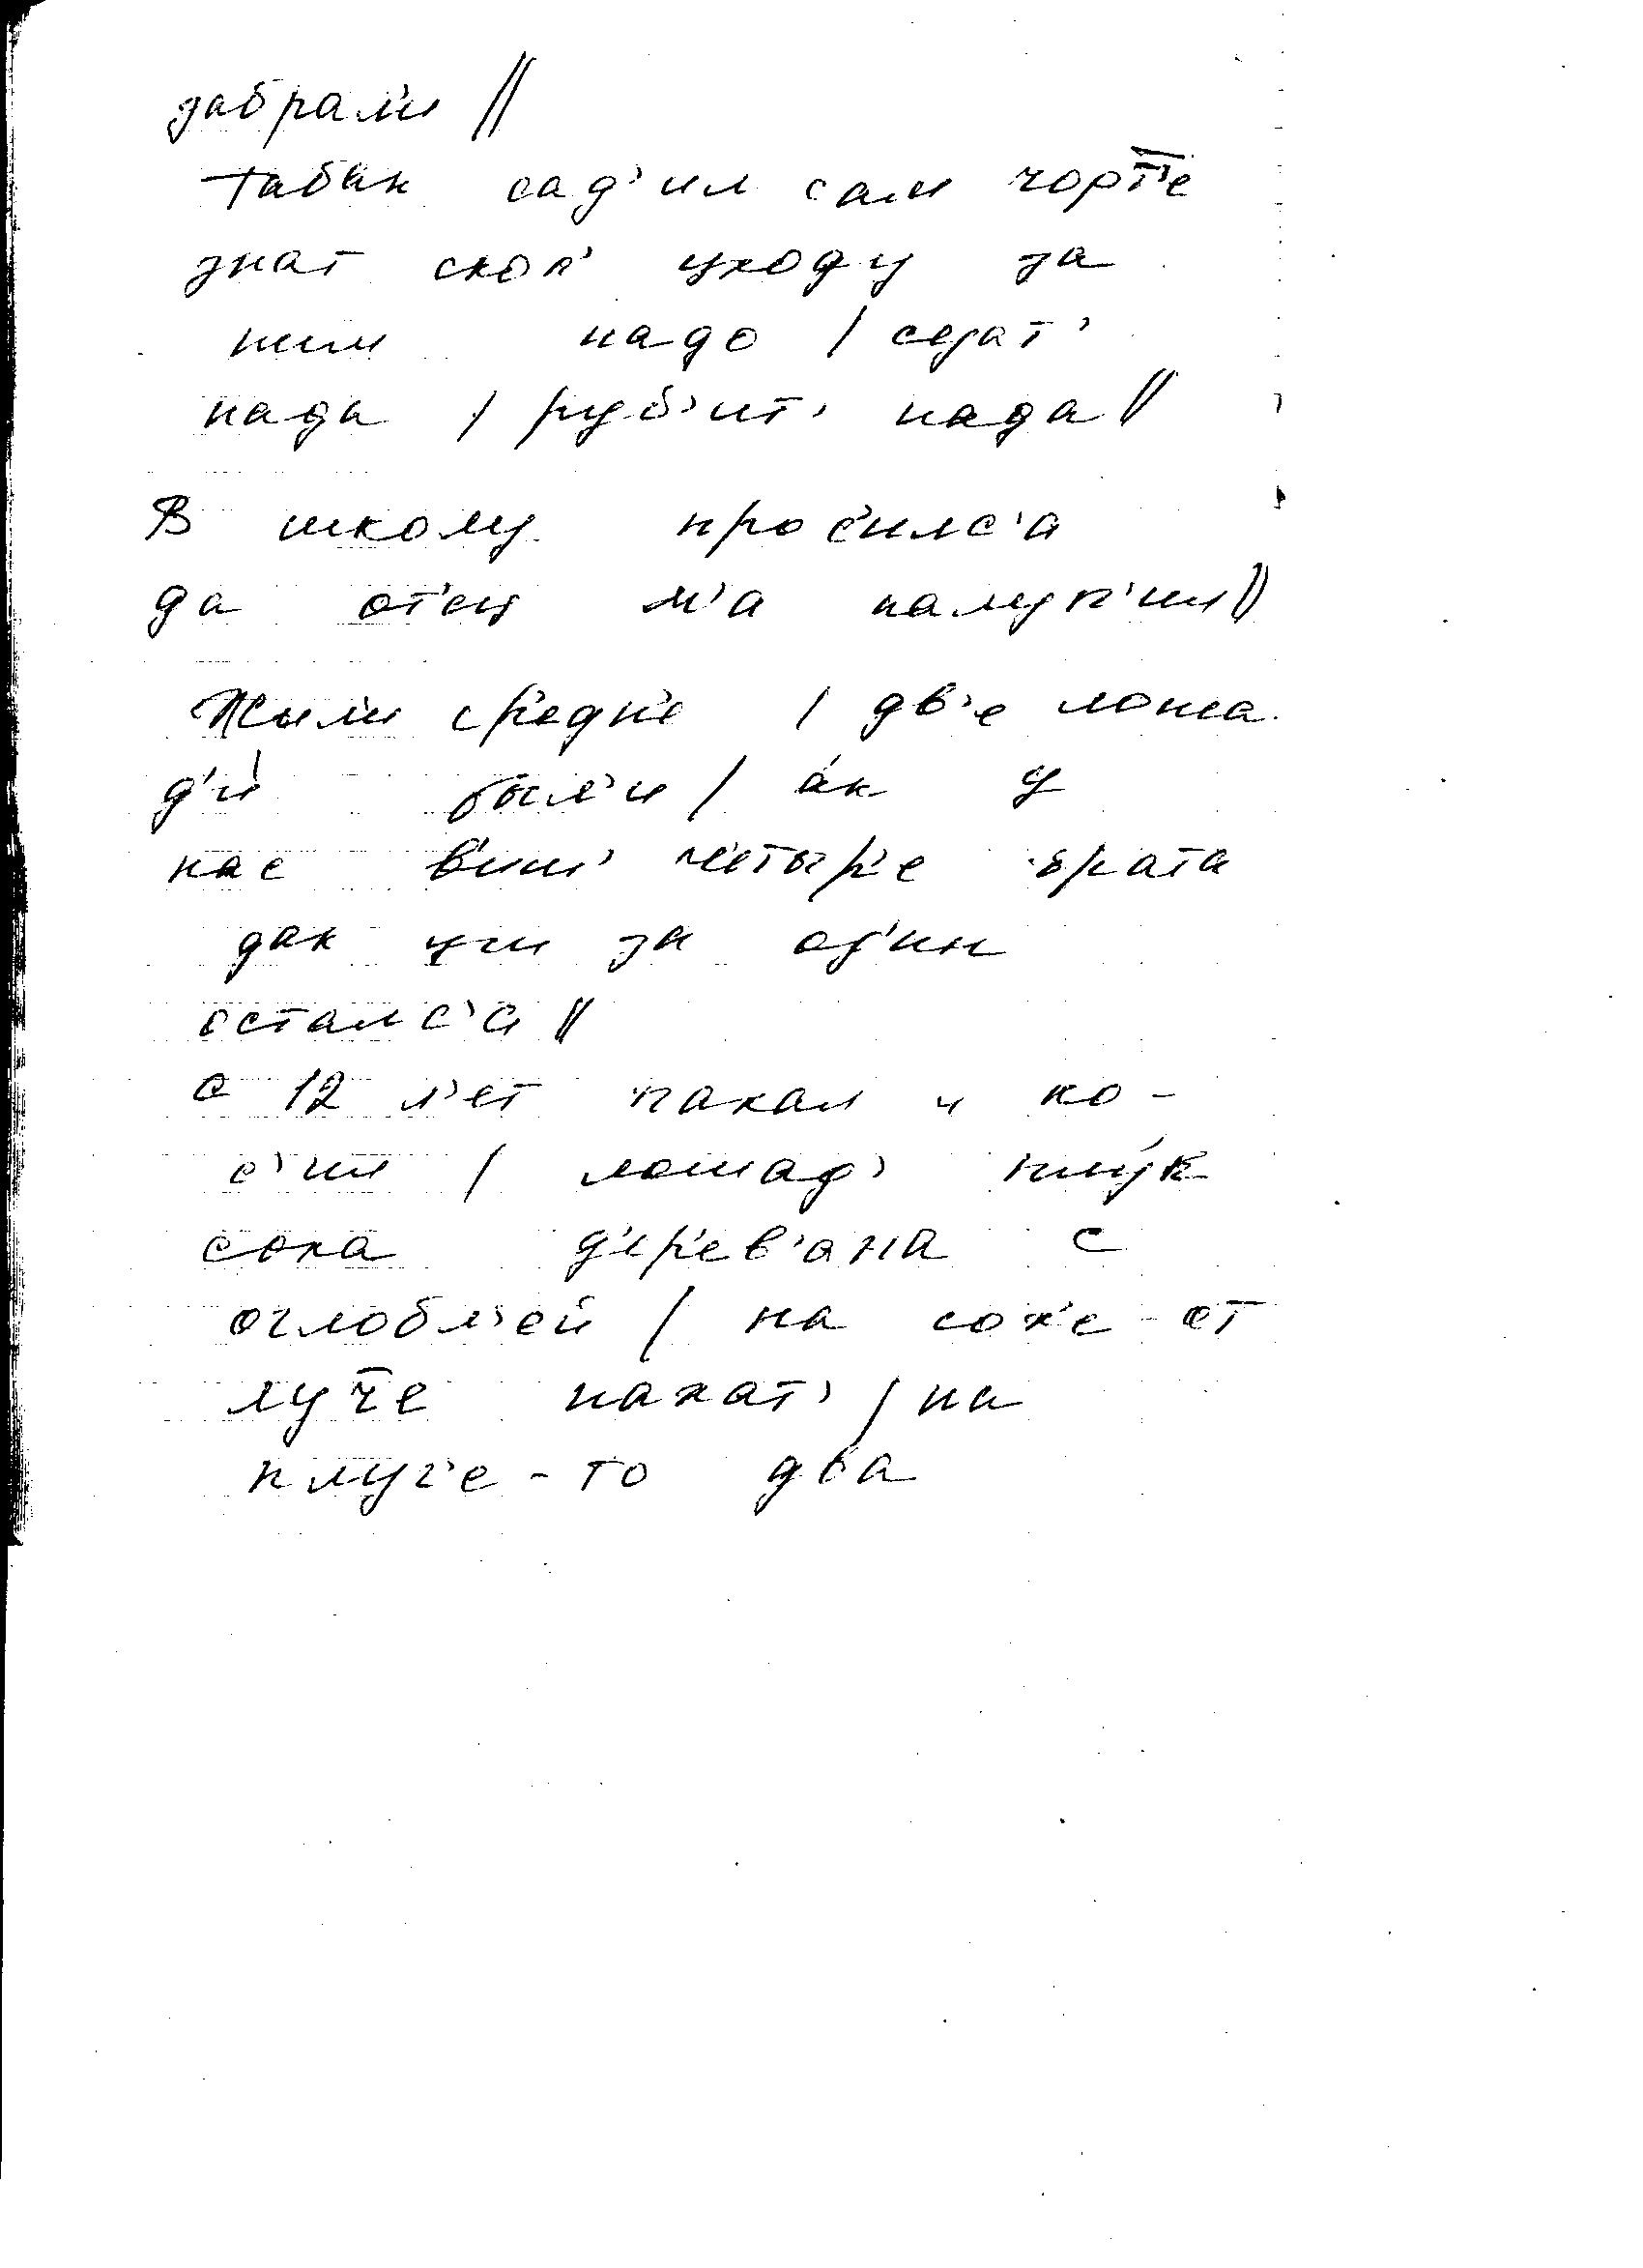 забрал'и //
Табак сад'ил сам чорт'е
знат скол' уходу за
ним надо / сєзат'
нада / руб'ит' нада //
В школу прос'илс'а
да от'ец м'а налуп'ил //
Жыли ср'едн'е / дв'е лоша
д'и был'и / ак у
нас виш' четыр'е брата
дак уш за од'ин
осталс'а //
с 12 л'ет пахал и ко-
с'ил / лошад' плук
соха д'ер'ев'ана с
оглобл'ей / на сох'е-от
луче пахат' / на
плуг'е-то два